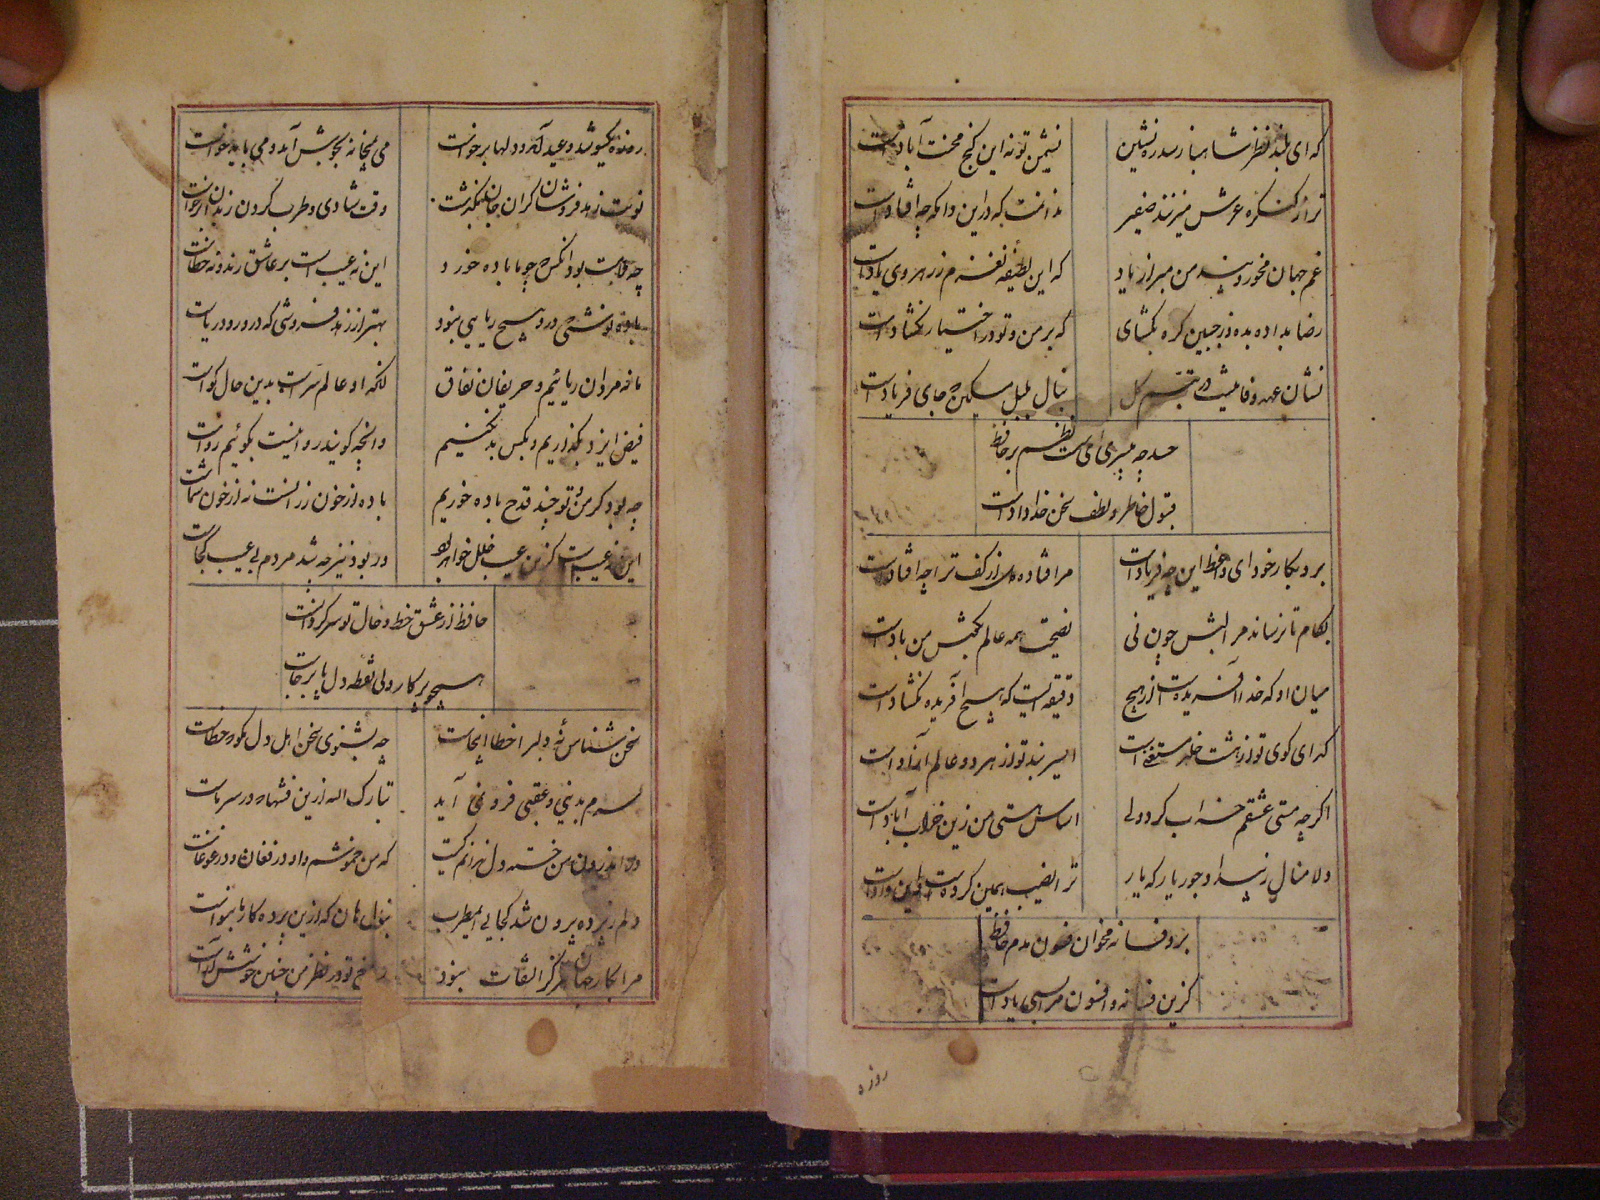 که ای بلند نظر شاهباز سدره نشین نشیمن تو نه این کنج محنت آبادست
ترا ز کنکره عرش میزنند صفیر ندانمت که در این دامکه چه افتادست
غم جهان مخور و پند من مبر از یاد که این لطیفه نغزم ز رهروی یادست
رضا بداده بده وز جبین کره بکشای که بر من و تو در اختیار نکشادست
نشان عهد و وفا نیست در تبسم کل بنال بلبل مسکین که جای فریادست
حسد چه میبری ای سست نظم بر حافظ
قبول خاطر و لطف سخن خدادادست
برو بکار خود ای واعظ این چه فریادست مرا فتاده دل از کف ترا چه افتادست
بکام تا نرساند مرا لبش چون نی نصیحت همه عالم بکوش من بادست
میان او که خدا آفریده است از هیچ دقیقه ایست که هیچ آفریده نکشادست
کدای کوی تو از هشت خلد مستغنیست اسیر بند تو از هر دو عالم آزادست
اکرچه مستی عشقم خراب کرد ولی اساس هستی من زین خراب آبادست
دلا منال ز بیداد و جور یار که یار ترا نصیب همین کردست و این دادست
برو فسانه مخوان و فسون مدم حافظ
کزین فسانه و افسون مرا بسی یادست
روزه
روزه یکسو شد و عید آمد و دلها برخواست می بمیخانه بجوش آمد و می باید خواست
نوبت زهد فروشان کران جان بکذشت وقت شادی و طرب کردن رندان برخواست
چه ملامت بود آنکس که چو ما باده خورد این نه عیب است بر عاشق رند و نه خطاست
باده نوشی که درو هیچ ریایی نبود بهتر از زهد فروشی که درو روی و ریاست
ما نه مردان ریائیم و حریفان نفاق آنکه او عالم سرست بدین حال کواست
فرض ایزد بکذاریم و بکس بد نکنیم وانچه کویند روا نیست بکوئیم رواست
چه بود کر من و تو چند قدح باده خوریم باده از خون رزانست نه از خون شماست
این نه عیبست کزین عیب خلل خواهد بود ور بود نیز چه شد مردم بی عیب کجاست
حافظ از عشق خط و خال تو سرکردانست
همچو پرکار ولی نقطه دل پا برجاست
سخن شناس نهٔ دلبرا خطا اینجاست چه بشنوی سخن اهل دل مکو که خطاست
سرم بدنیی و عقبی فرو نمی آید تبارک الله ازین فتنها که در سر ماست
در اندرون من خسته دل ندانم کیست که من خموشم و او در فغان و در غوغاست
دلم ز پرده برون شد کجایی ای مطرب بنال هان که ازین پرده کار ما بنواست
مرا بکار جهان هرکز التفات نبود رخ تو در نظر من چنین خوشش آراست